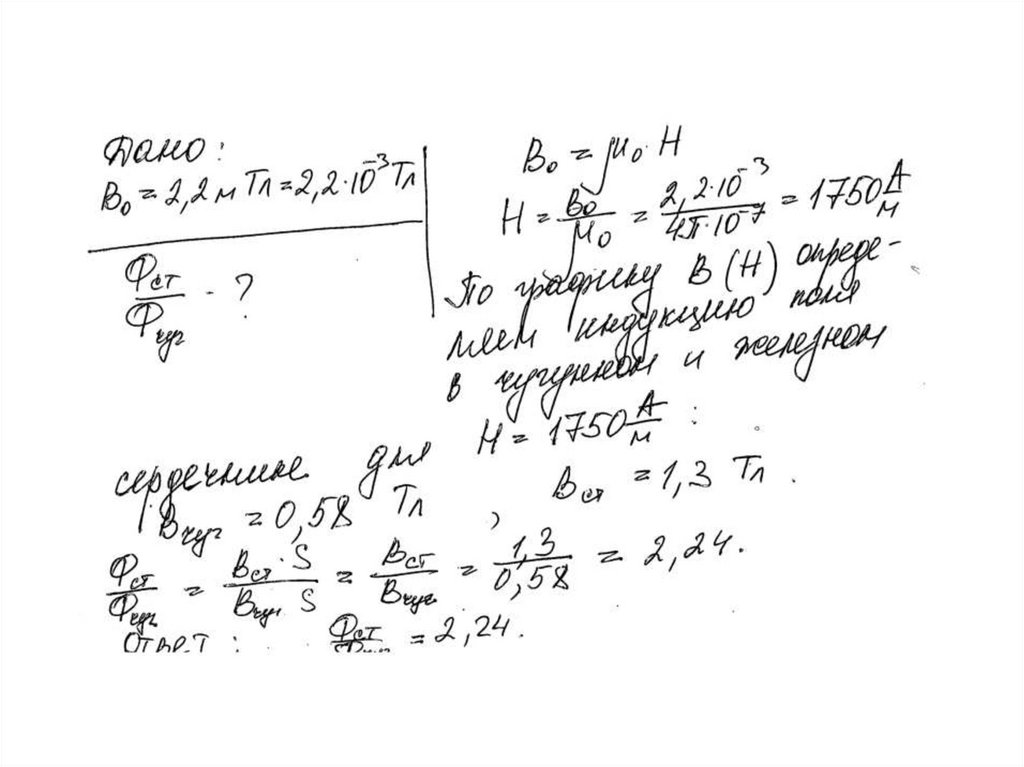 Дано:
B₀ = 2,2 мТл = 2,2·10⁻³ Тл
Фст/Фчуг - ?
B₀ = μ₀·H
H = B₀/μ₀ = 2,2·10⁻³/4π·10⁻⁷ = 1750 А/м
По графику B(H) опреде-
ляем индукцию поля
в чугунном и железном
сердечнике для H = 1750 А/м :
Bчуг = 0,58 Тл , Bст = 1,3 Тл .
Фст/Фчуг = Bст·S/Bчуг·S = Bст/Bчуг = 1,3/0,58 = 2,24.
Ответ : Фст/Фчуг = 2,24.